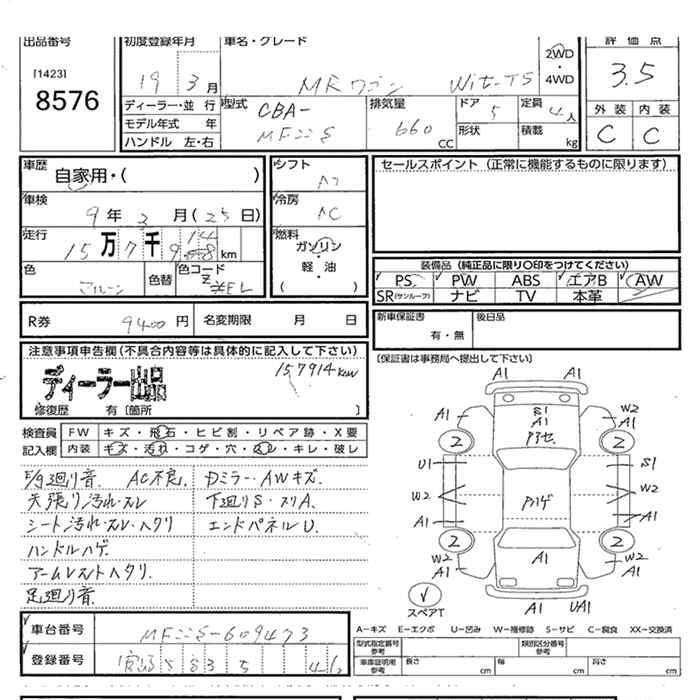 出品番号
[1423]
8576
初度登録年月
19 3月
車名・グレード
MRワゴン Wit-TS
2WD
・
4WD
評価点
3.5
外装 内装
C C
ディーラー・並行
モデル年式 年
ハンドル 左・右
型式 CBA-
MF22S
排気量
660 CC
ドア 5
形状
定員 4人
積載 kg
車歴
自家用・( )
車検
9年 3月(25日)
走行
15万7千914km
色
マルーン
色替
色コード
シフト
AT
冷房
AC
燃料
ガソリン
軽・油
( )
セールスポイント (正常に機能するものに限ります)
装備品 (純正品に限り〇印をつけてください)
PS PW ABS エアB AW
SR(サンルーフ) ナビ TV 本革
R券 9400円 名変期限 月 日
新車保証書
有・無
後日品
[保証書は事務局へ提出して下さい]
注意事項申告欄(不具合内容等は具体的に記入して下さい)
157914km
ディーラー出品
修復歴 有 [箇所 ]
検査員
記入欄
FW キズ・飛石・ヒビ割・リペア跡・X要
内装 キズ・汚れ・コゲ・穴・スレ・キレ・破レ
F/g廻り音. AC不良. Dミラー・AWキズ.
天張り汚れ・スレ 下廻りS・スリA.
シート汚れ・スレ・ヘタリ エンドパネルU.
ハンドルハゲ.
アームレストヘタリ.
足廻り音.
A1 A1
S1
A1
アアセ
W2
A1
W2
A1
2 2
U1 S1
W2 W2
アハゲ
A1 A1
2 2
W2
A1
A1
W2
A1
A1 UA1
スペアT
A-キズ E-エクボ U-凹み W-補修跡 S-サビ C-腐食 XX-交換済
車台番号 MF22S-609473
登録番号 5 8 3 5 4 6
型式指定番号
参考
類別区分番号
参考
車庫証明用
参考
長さ cm 幅 cm 高さ cm